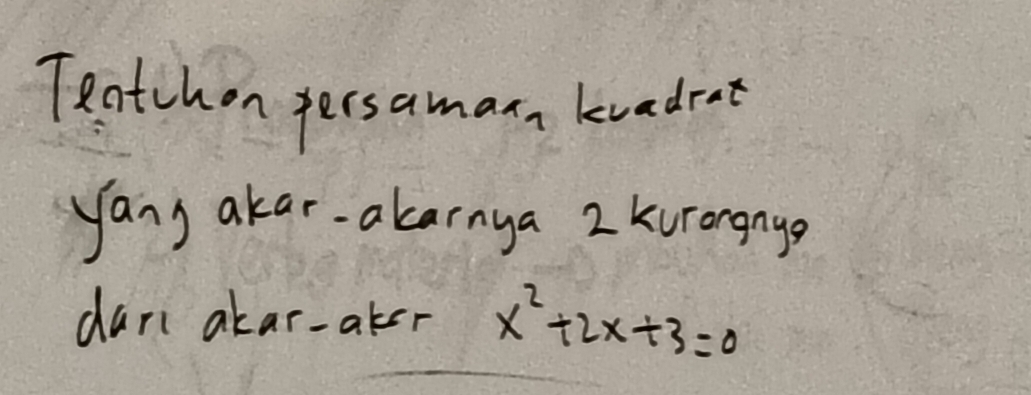 Tentukan persamaan kuadrat
yang akar-akarnya 2 kurangnya
dari akar-akar x²+2x+3=0